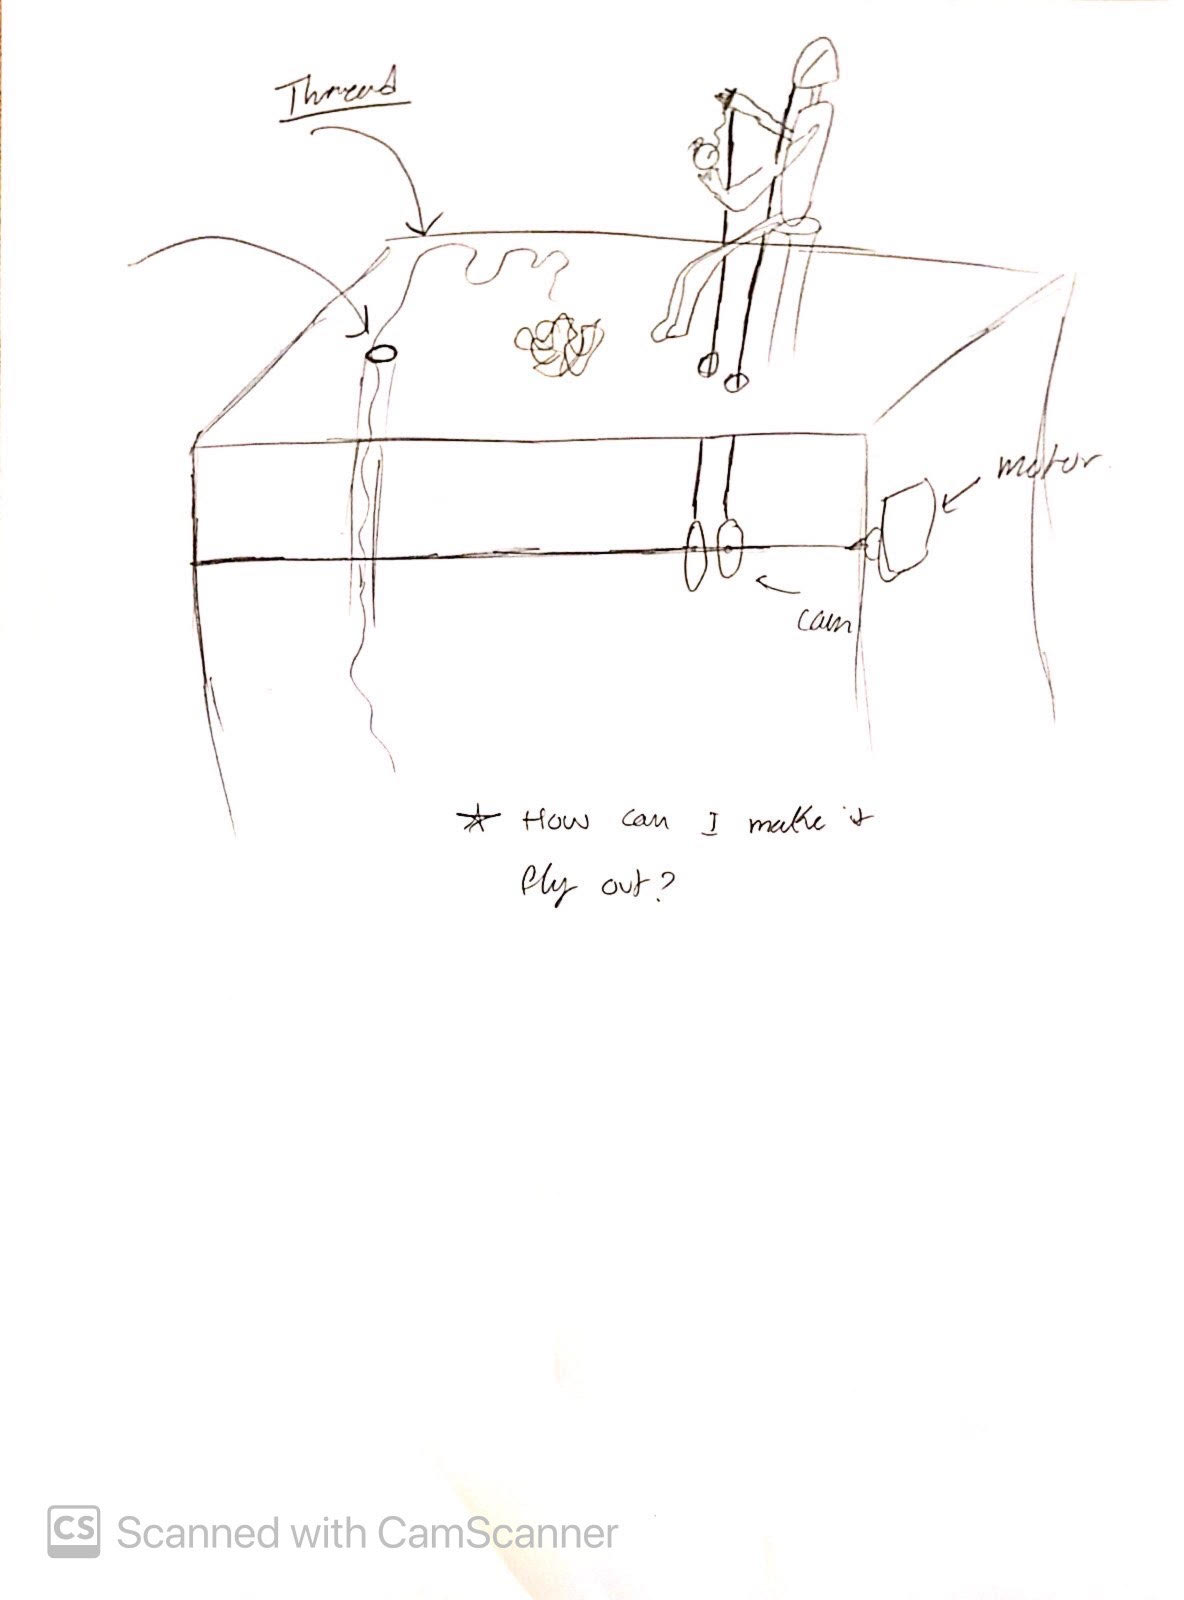 Thread
motor
cam
* How can I make it
fly out?
CS Scanned with CamScanner